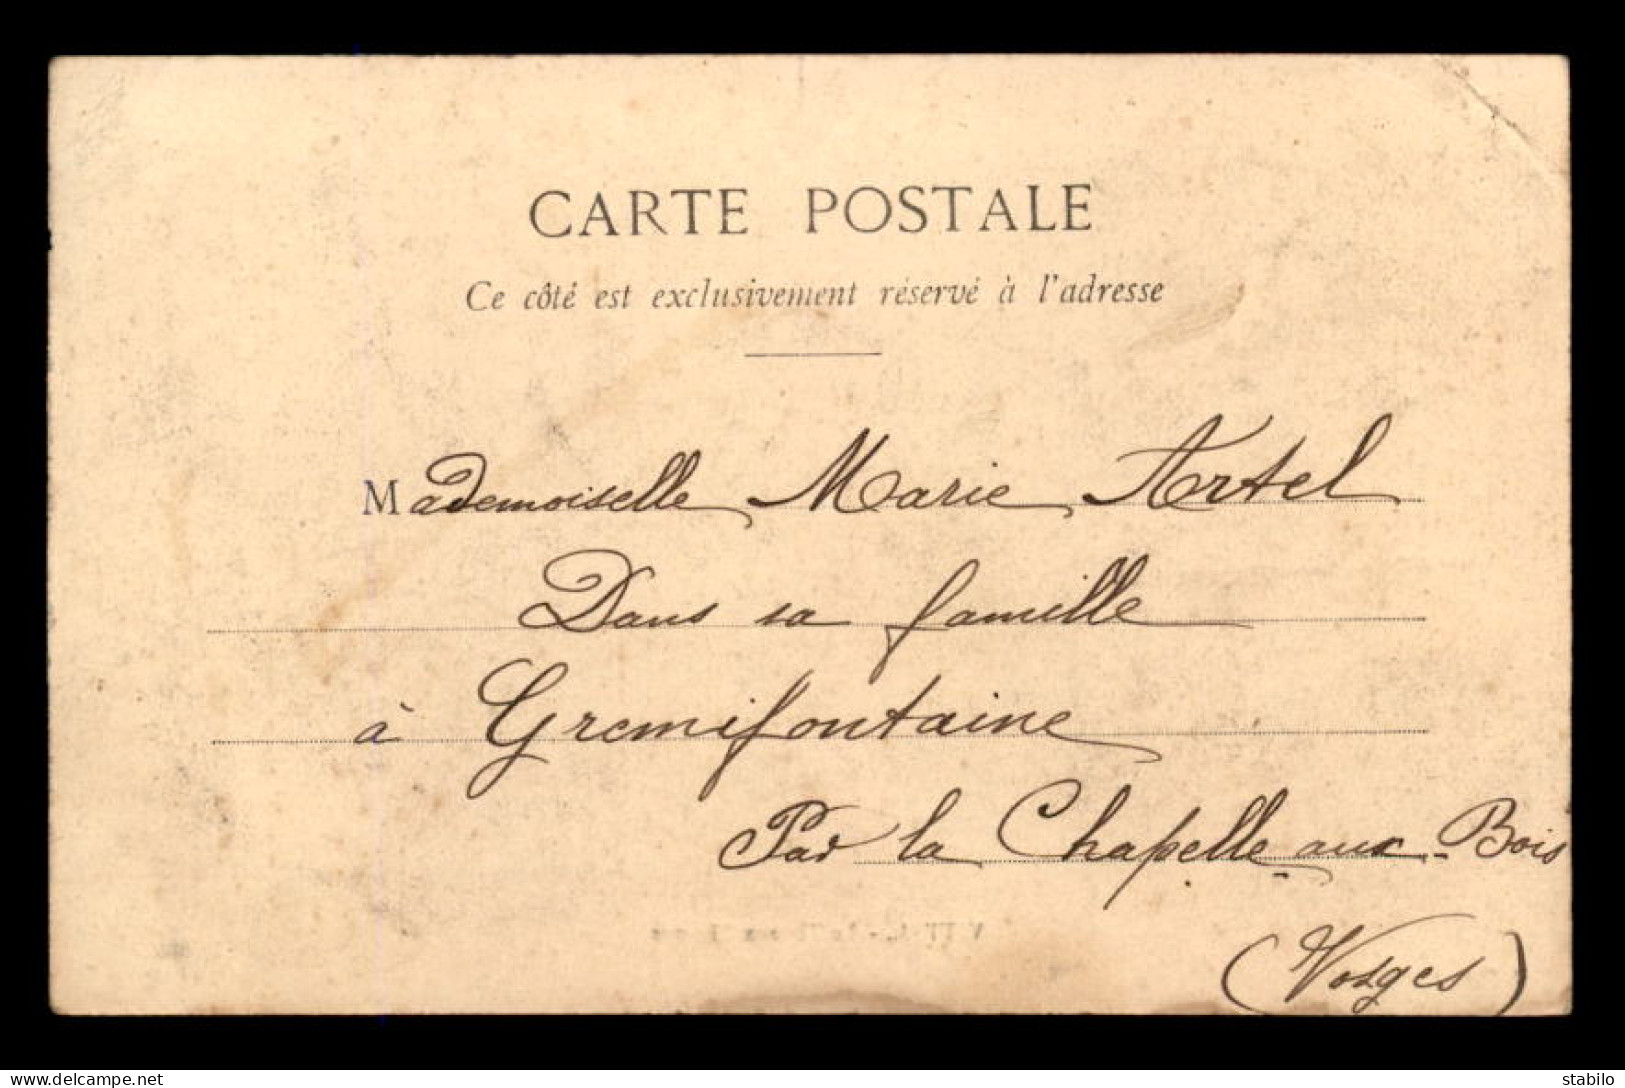 CARTE POSTALE
Ce côté est exclusivement réservé à l'adresse
Mademoiselle Marie Artel
Dans sa famille
à Gremifontaine
Par la Chapelle aux-Bois
(Vosges)
delcampe.net
stabilo